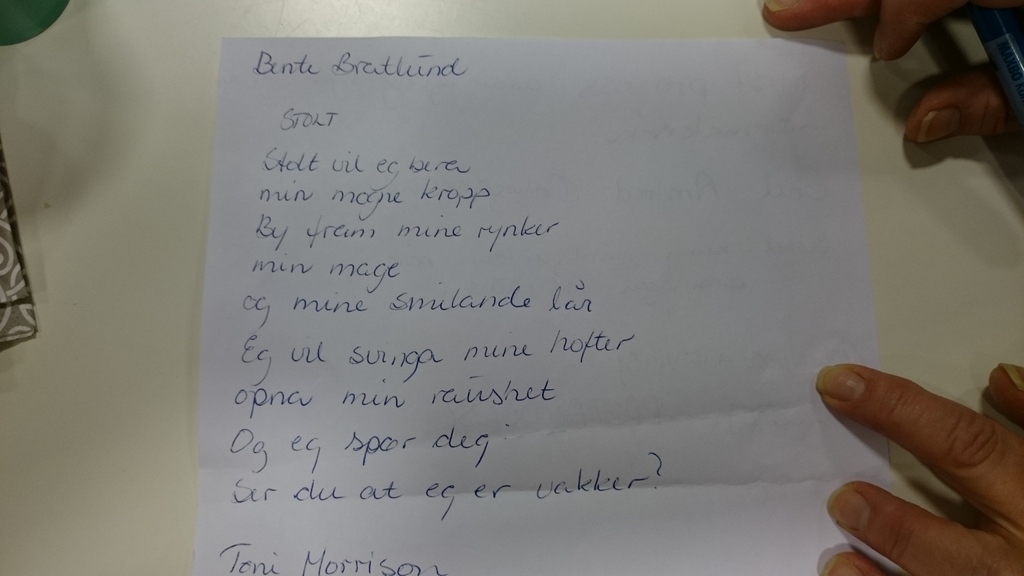 Bente Bratlund
STOLT
Stolt vil eg bera
min mogne kropp
By fram mine rynker
min mage
og mine smilande lår
Eg vil svinga mine hofter
opna min raushet
Og eg spør deg:
Ser du at eg er vakker?
Toni Morrison